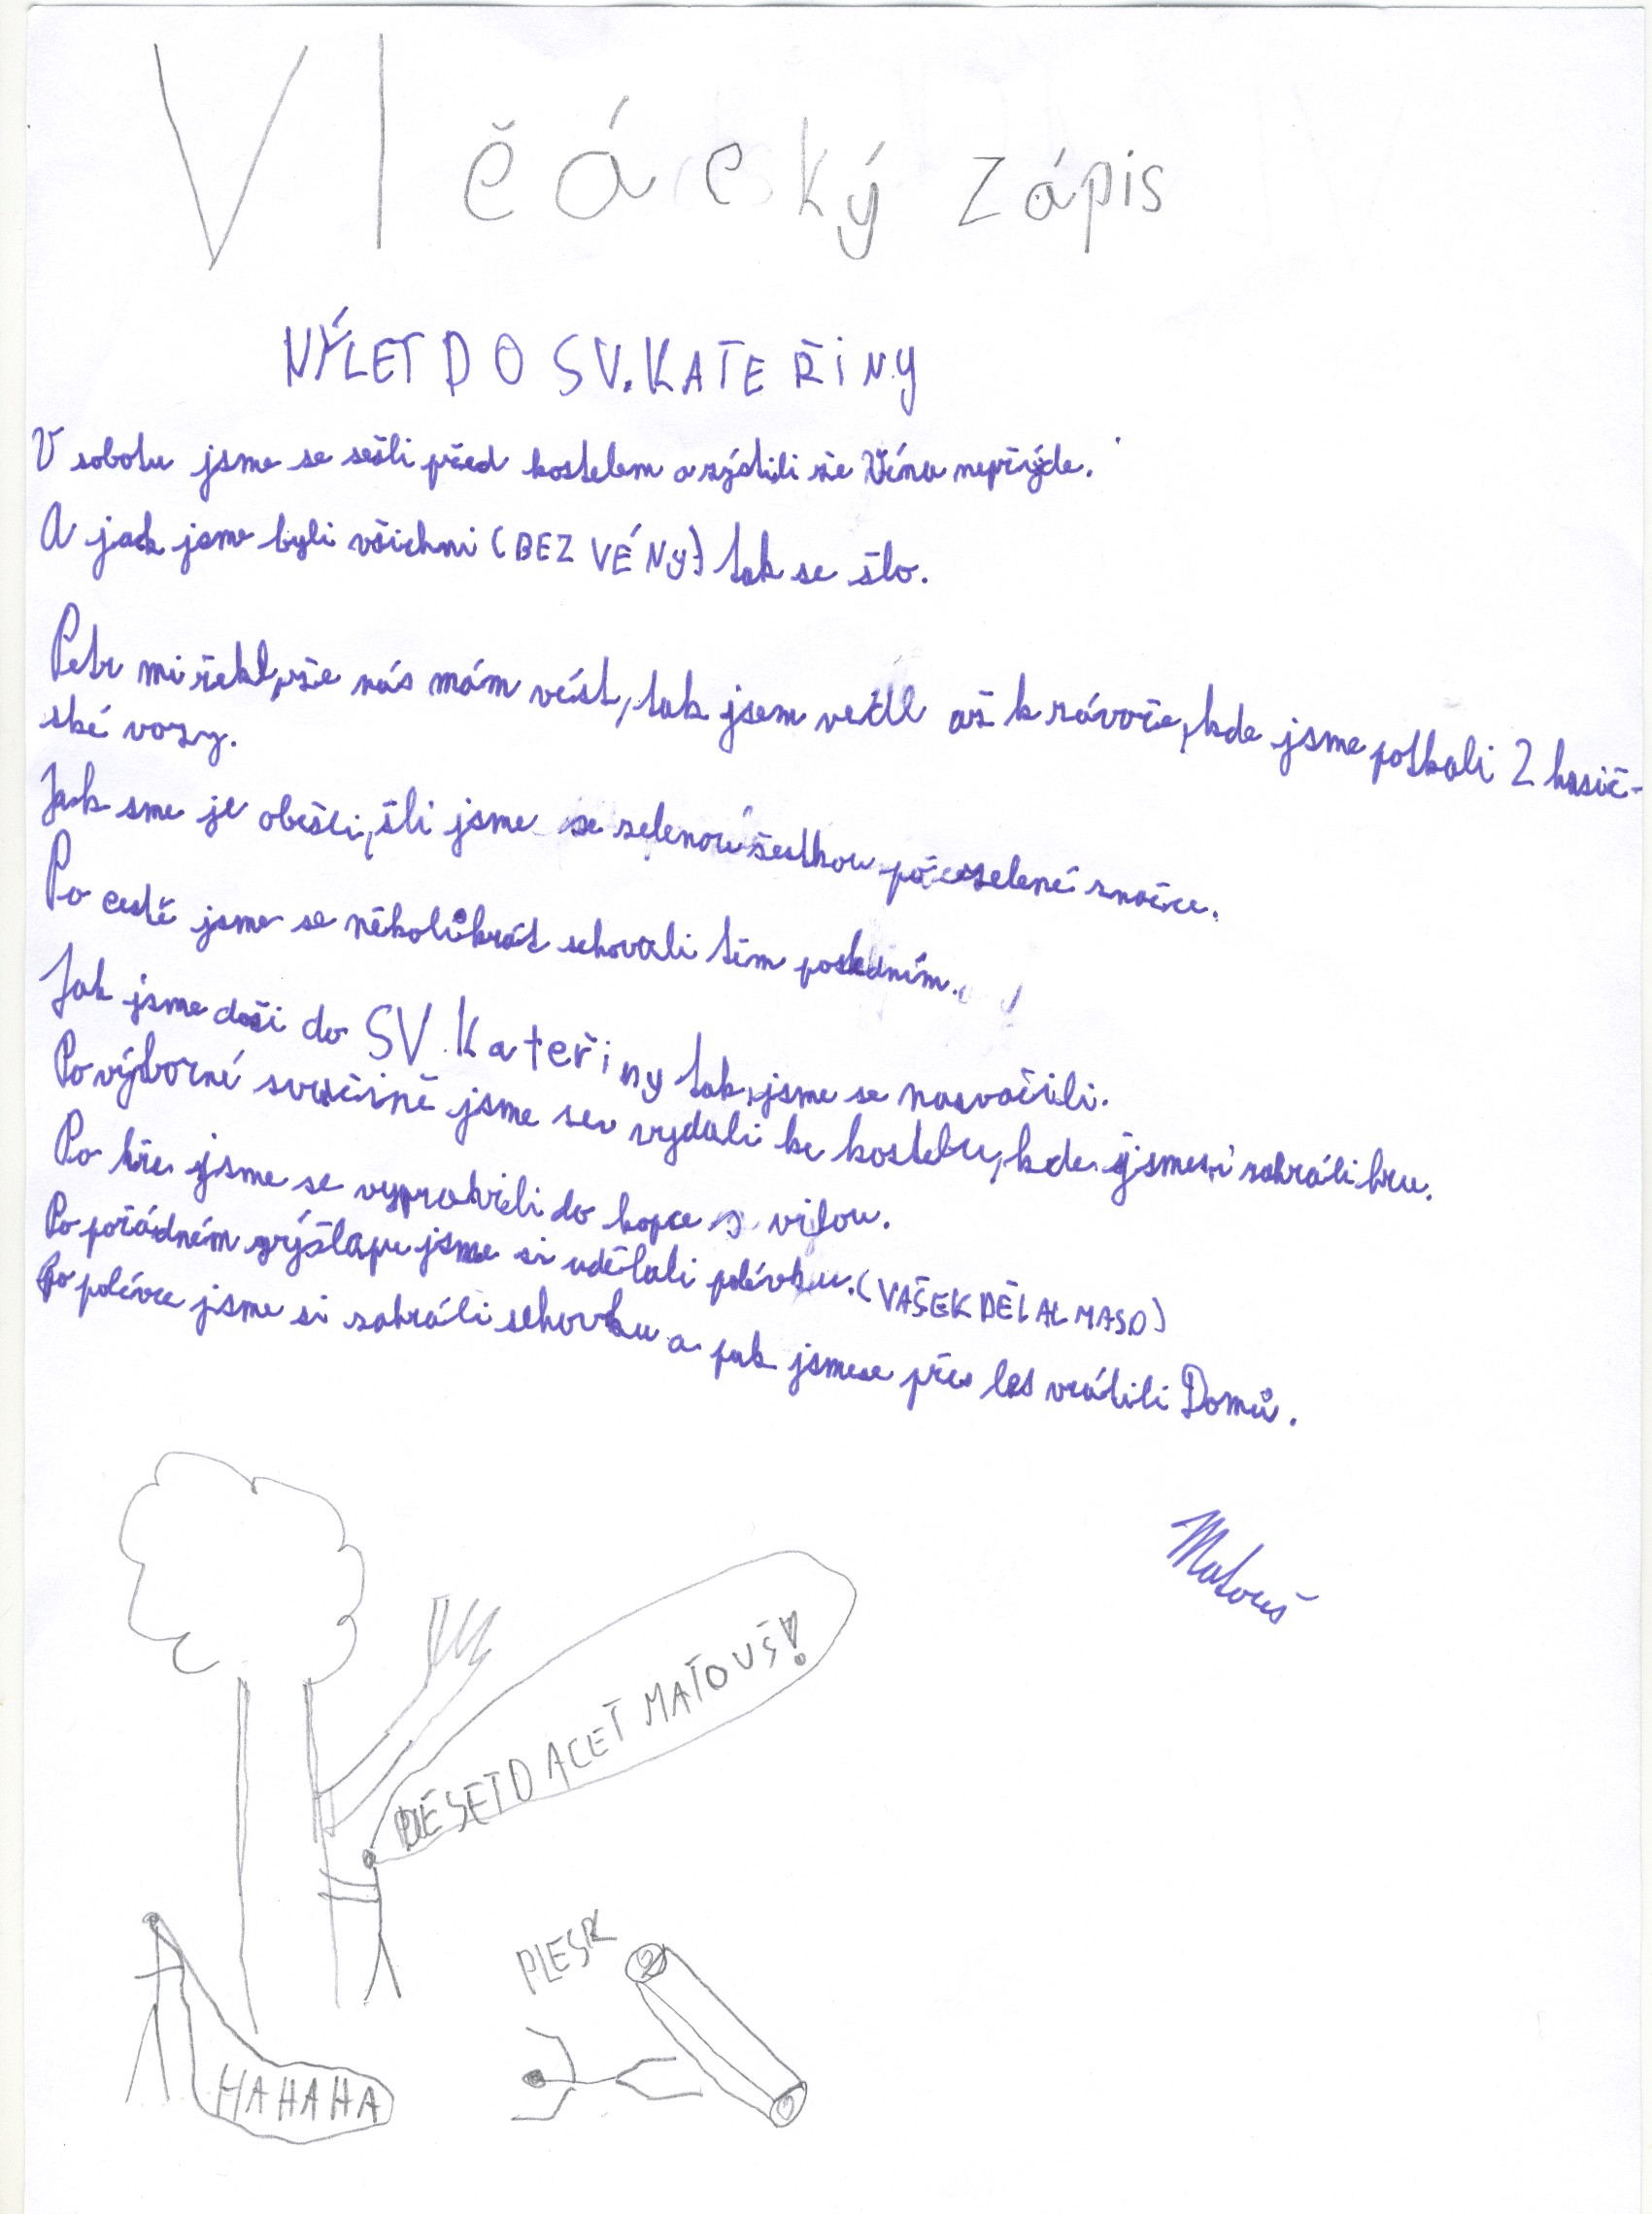 Vlčácký zápis
VÝLET DO SV. KATEŘINY
V sobotu jsme se sešli před kostelem a zjistili že Véna nepřýde.
A jak jsme byli všichni (BEZ VÉNY) tak se šlo.
Petr mi řekl, že nás mám vést, tak jsem vedl až k závoře, kde jsme potkali 2 hasič-
ské vozy.
Jak sme je obešli, šli jsme se zelenou šestkou po zelené značce.
Po cestě jsme se několikrát schovali těm posledním.
Jak jsme došli do SV. Kateřiny tak jsme se nasvačili.
Po výborné svačině jsme se vydali ke kostelu, kde jsme si zahráli hru.
Po hře jsme se vypravili do kopce s vilou.
Po pořádném výšlapu jsme si udělali polévku. (VAŠEK DĚLAL MASO)
Po polévce jsme si zahráli schovku a pak jsme se přes les vrátili Domů.
Matouš
DESET DACET MATOUŠ!
PLESK
HAHAHA